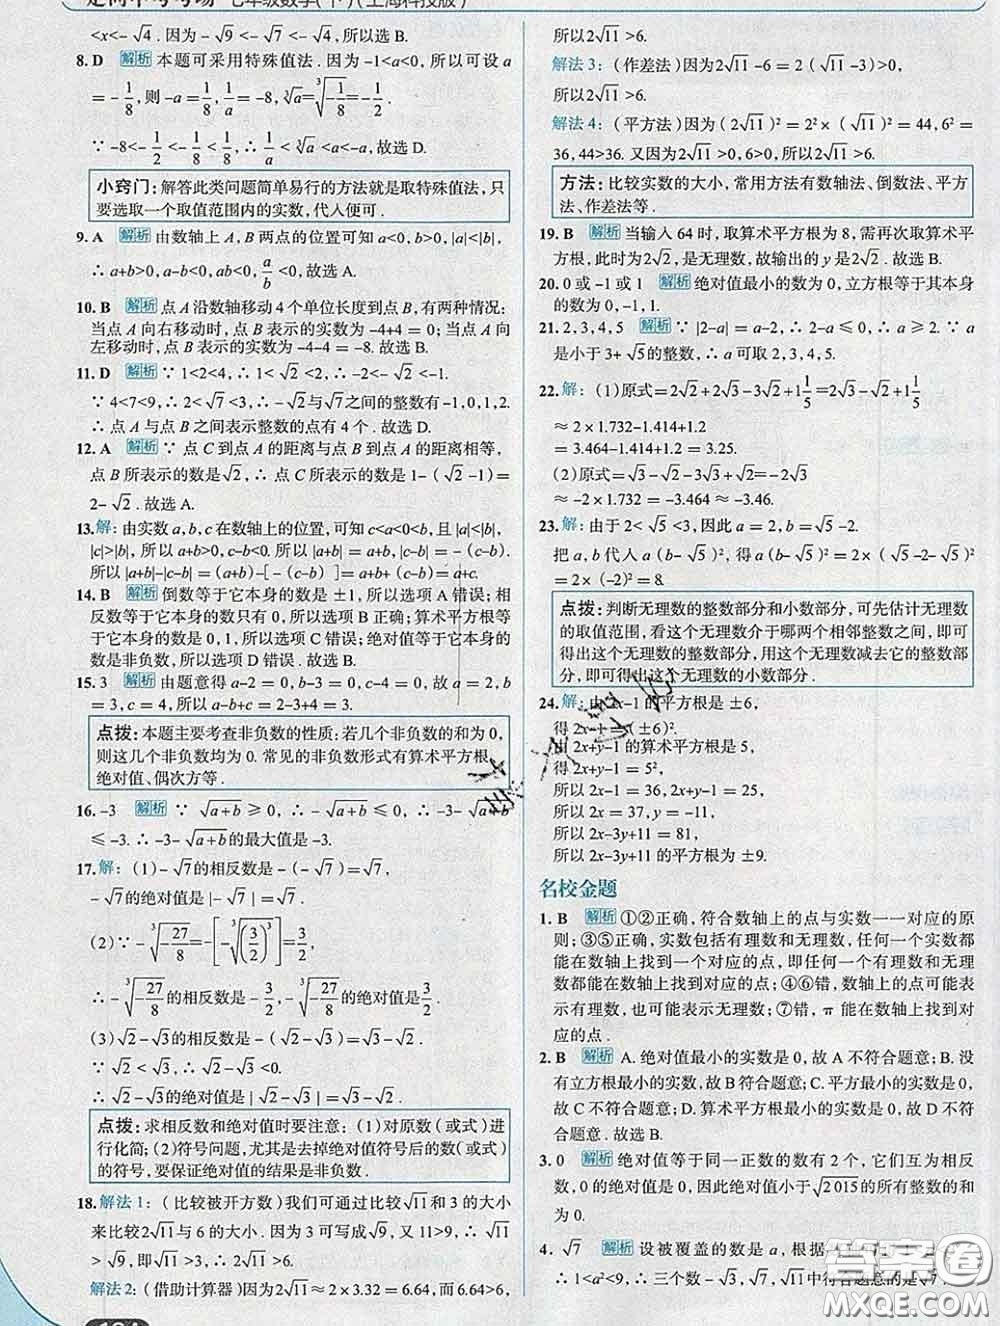 走向中考考场 七年级数学(下)(上海科技版)
<x<-√4. 因为-√9<-√7<-√4,所以选 B.
8. D 解析 本题可采用特殊值法. 因为-1<a<0, 所以可设 a
=-1/8, 则-a=1/8, 1/a=-8, ∛a=∛(-1/8)=-1/2.
∵ -8<-1/2<-1/8<1/8, ∴ 1/a<∛a<a<-a. 故选 D.
小窍门: 解答此类问题简单易行的方法就是取特殊值法, 只
要选取一个取值范围内的实数, 代入便可.
9. A 解析 由数轴上 A, B 两点的位置可知 a<0, b>0, |a|<|b|,
∴ a+b>0, a-b<0, ab<0, a/b<0, 故选 A.
10. B 解析 点 A 沿数轴移动 4 个单位长度到点 B, 有两种情况:
当点 A 向右移动时, 点 B 表示的实数为-4+4=0; 当点 A 向
左移动时, 点 B 表示的实数为-4-4=-8. 故选 B.
11. D 解析 ∵ 1<2<4, ∴ 1<√2<2, ∴ -2<-√2<-1.
∵ 4<7<9, ∴ 2<√7<3, ∴ -√2与√7之间的整数有-1,0,1,2.
∴ 点 A 与点 B 之间表示整数的点有 4 个. 故选 D.
12. A 解析 ∵ 点 C 到点 A 的距离与点 B 到点 A 的距离相等,
点 B 所表示的数是√2, ∴ 点 C 所表示的数是 1-(√2-1)=
2-√2. 故选 A.
13. 解: 由实数 a,b,c 在数轴上的位置, 可知 c<a<0<b, 且|a|<|b|,
|c|>|b|, 所以 a+b>0, c-b<0. 所以|a+b|=a+b, |c-b|=-(c-b).
所以|a+b|-|c-b|=(a+b)-[-(c-b)]=(a+b)+(c-b)=a+c.
14. B 解析 倒数等于它本身的数是 ±1, 所以选项 A 错误; 相
反数等于它本身的数只有 0, 所以选项 B 正确; 算术平方根等
于它本身的数是 0,1, 所以选项 C 错误; 绝对值等于它本身的
数是非负数, 所以选项 D 错误. 故选 B.
15. 3 解析 由题意得 a-2=0, b-3=0, c-4=0, 故 a=2, b=
3, c=4, 所以 a-b+c=2-3+4=3.
点拨: 本题主要考查非负数的性质: 若几个非负数的和为 0,
则这几个非负数均为 0. 常见的非负数形式有算术平方根、
绝对值、偶次方等.
16. -3 解析 ∵ √(a+b) ≥ 0, ∴ -√(a+b) ≤ 0, ∴ -3-√(a+b)
≤ -3. ∴ -3-√(a+b)的最大值是-3.
17. 解: (1)-√7的相反数是-(-√7)=√7,
-√7的绝对值是|-√7|=√7.
(2)∵ -∛(-27/8)=-[-∛((3/2)³)]=3/2,
∴ -∛(-27/8)的相反数是-3/2, -∛(-27/8)的绝对值是3/2.
(3)√2-√3的相反数是-(√2-√3)=√3-√2.
∵ √2<√3, ∴ √2-√3<0.
∴ √2-√3的绝对值是|√2-√3|=√3-√2.
点拨: 求相反数和绝对值时要注意: (1)对原数(或式)进
行化简; (2)符号问题, 尤其是去掉绝对值符号后的数(或式)
的符号, 要保证绝对值的结果是非负数.
18. 解法 1: (比较被开方数)我们可通过比较√11和 3 的大小
来比较2√11与 6 的大小. 因为 3 可写成√9, 又 11>9, ∴ √11
>√9, 即√11>3, 所以 2√11>6.
解法 2: (借助计算器)因为 2√11≈2×3.32=6.64, 而 6.64>6,
所以 2√11>6.
解法 3: (作差法)因为 2√11-6=2(√11-3)>0,
所以 2√11>6.
解法 4: (平方法)因为(2√11)²=2²×(√11)²=44, 6²=
36, 44>36. 又因为 2√11>0, 6>0, 所以 2√11>6.
方法: 比较实数的大小, 常用方法有数轴法、倒数法、平方
法、作差法等.
19. B 解析 当输入 64 时, 取算术平方根为 8, 需再次取算术平
方根, 此时为 2√2, 是无理数, 故输出的 y 是 2√2. 故选 B.
20. 0 或-1 或 1 解析 绝对值最小的数为 0, 立方根等于其本身
的数为 0,-1,1.
21. 2,3,4,5 解析 ∵ |2-a|=a-2, ∴ 2-a ≤ 0, ∴ a ≥ 2. ∵ a
是小于 3+√5的整数, ∴ a 可取 2,3,4,5.
22. 解: (1)原式=2√2+2√3-3√2+1 1/5=2√3-√2+1 1/5
≈ 2×1.732-1.414+1.2
=3.464-1.414+1.2=3.25.
(2)原式=√3-√2-3√3+√2=-2√3
≈ -2×1.732=-3.464≈-3.46.
23. 解: 由于 2<√5<3, 因此 a=2, b=√5-2.
把 a,b 代入 a(b-√5)², 得 a(b-√5)²=2×(√5-2-√5)²
=2×(-2)²=8.
点拨: 判断无理数的整数部分和小数部分, 可先估计无理数
的取值范围, 看这个无理数介于哪两个相邻整数之间, 即可
得出这个无理数的整数部分, 用这个无理数减去它的整数部
分, 即可得出这个无理数的小数部分.
24. 解: 由 2x-1 的平方根是 ±6,
得 2x-1=(±6)².
由 2x+y-1 的算术平方根是 5,
得 2x+y-1=5²,
所以 2x-1=36, 2x+y-1=25,
所以 2x=37, y=-11,
所以 2x-3y+11=81,
所以 2x-3y+11 的平方根为 ±9.
名校金题
1. B 解析 ①②正确, 符合数轴上的点与实数一一对应的原
则; ③⑤正确, 实数包括有理数和无理数, 任何一个实数都
能在数轴上找到一个对应的点, 即任何一个有理数和无理
数都能在数轴上找到对应的点; ④⑥错, 数轴上的点可能表
示有理数, 也可能表示无理数; ⑦错, π 能在数轴上找到对
应的点.
2. B 解析 A. 绝对值最小的实数是 0, 故 A 不符合题意; B. 没
有立方根最小的实数, 故 B 符合题意; C. 平方最小的实数是
0, 故 C 不符合题意; D. 算术平方根最小的实数是 0, 故 D 不
符合题意. 故选 B.
3. 0 解析 绝对值等于同一正数的数有 2 个, 它们互为相反
数, 和为 0, 因此绝对值小于√2 015的所有整数的和
为 0.
4. √7 解析 设被覆盖的数是 a, 根
∴ 1<a²<9, ∴ 三个数-√3, √7, √11中符合题意的是√7.
答案圈
MXQE.COM